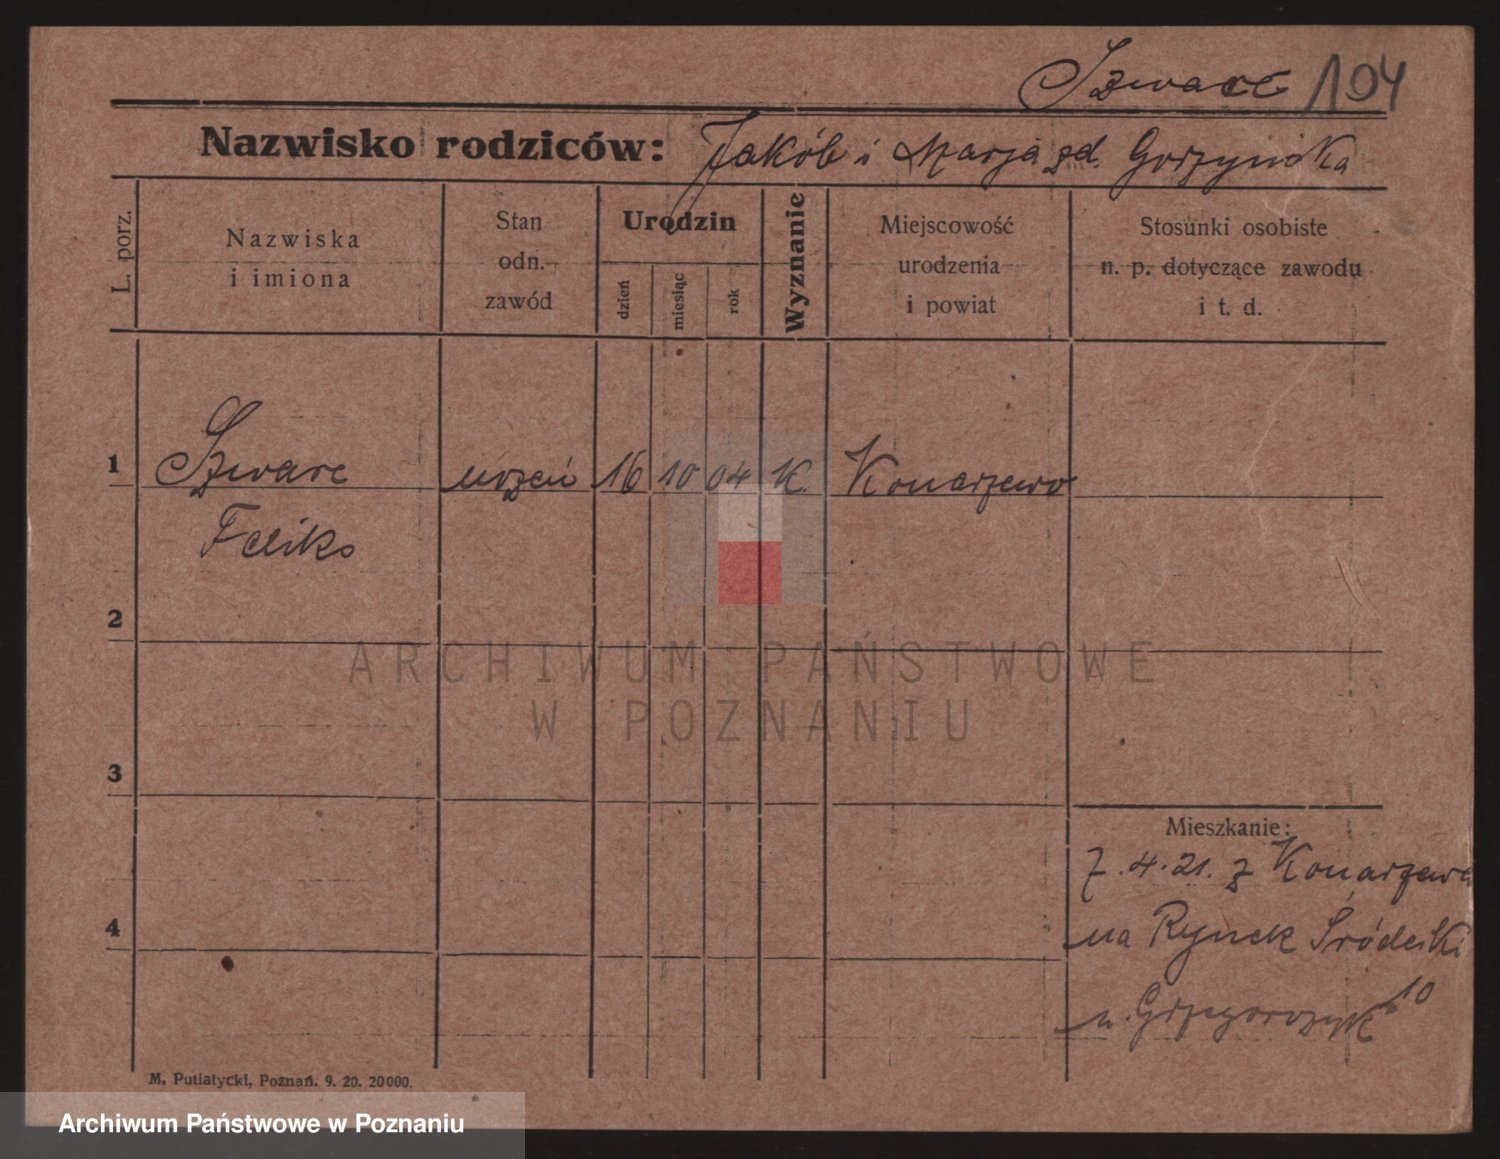 Szwarc 194
Nazwisko rodziców: Jakób i Marja zd. Gorzyńska
L. porz.
Nazwiska
i imiona
Stan
odn.
zawód
Urodzin
dzień
miesiąc
rok
Wyznanie
Miejscowość
urodzenia
i powiat
Stosunki osobiste
n. p. dotyczące zawodu
i t. d.
1 Szwarc uczeń 16 10 04 K. Konarzewo
Feliks
2
ARCHIWUM PAŃSTWOWE
W POZNANIU
3
Mieszkanie:
7.4.21. z Konarzewa
4
na Rynek Śródecki
10
u. Grzegorczyk
M. Putiatycki, Poznań. 9. 20. 20000.
Archiwum Państwowe w Poznaniu